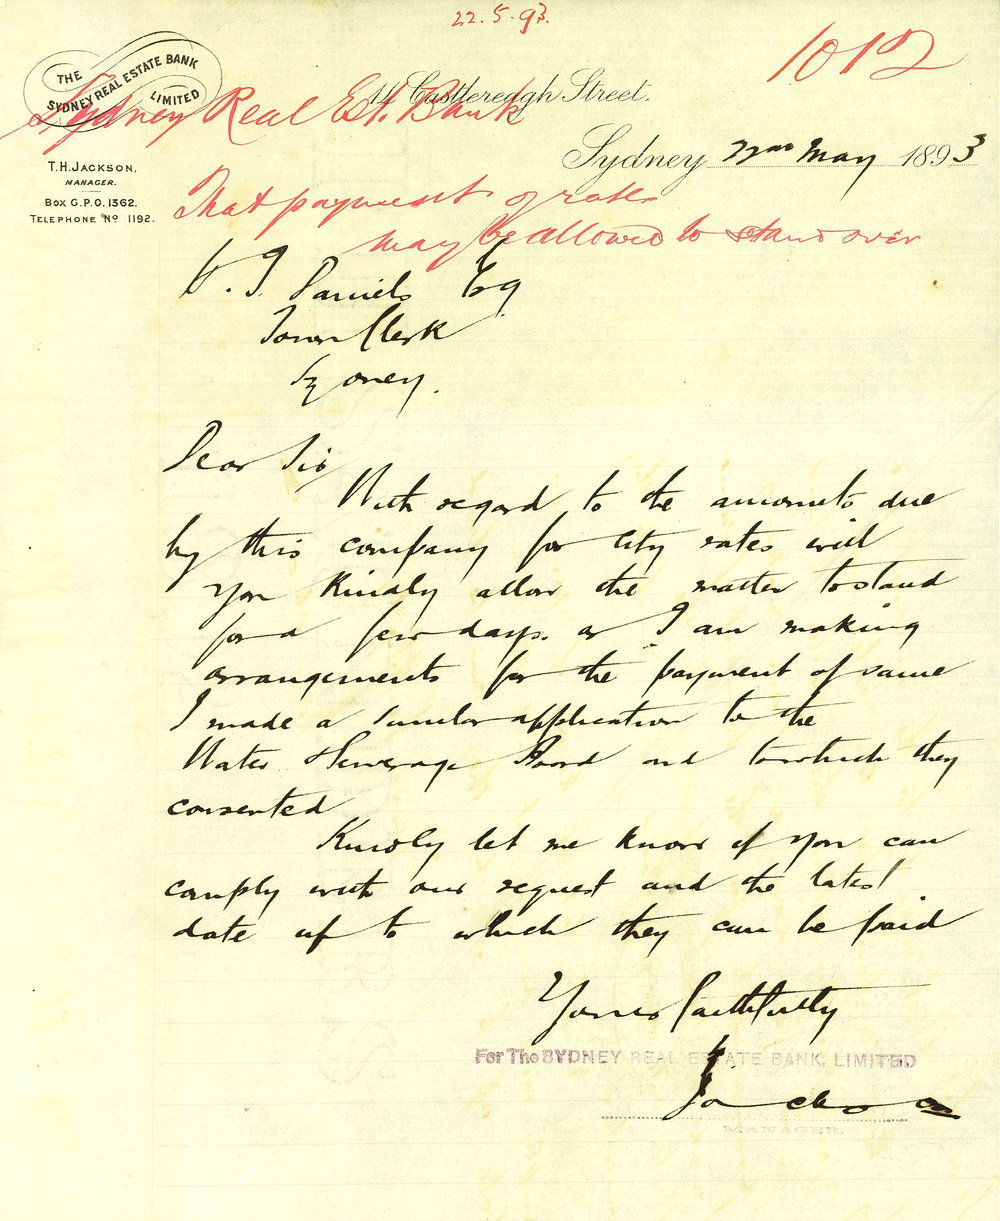 22.5.93.
1012
THE
SYDNEY REAL ESTATE BANK
LIMITED
14 Castlereagh Street.
Sydney Real Et. Bank
Sydney 22nd May 1893
T.H. JACKSON,
MANAGER.
BOX G.P.O. 1362.
TELEPHONE No 1192.
That payment of rates
may be allowed to stand over
H. J. Daniels Esq
Town Clerk
Sydney.
Dear Sir
With regard to the amounts due
by this company for city rates will
you kindly allow the matter to stand
for a few days. as I am making
arrangements for the payment of same
I made a similar application to the
Water & Sewerage Board and to which they
consented
Kindly let me know if you can
comply with our request and the latest
date up to which they can be paid
Yours faithfully
For The SYDNEY REAL ESTATE BANK, LIMITED
Jackson
MANAGER.